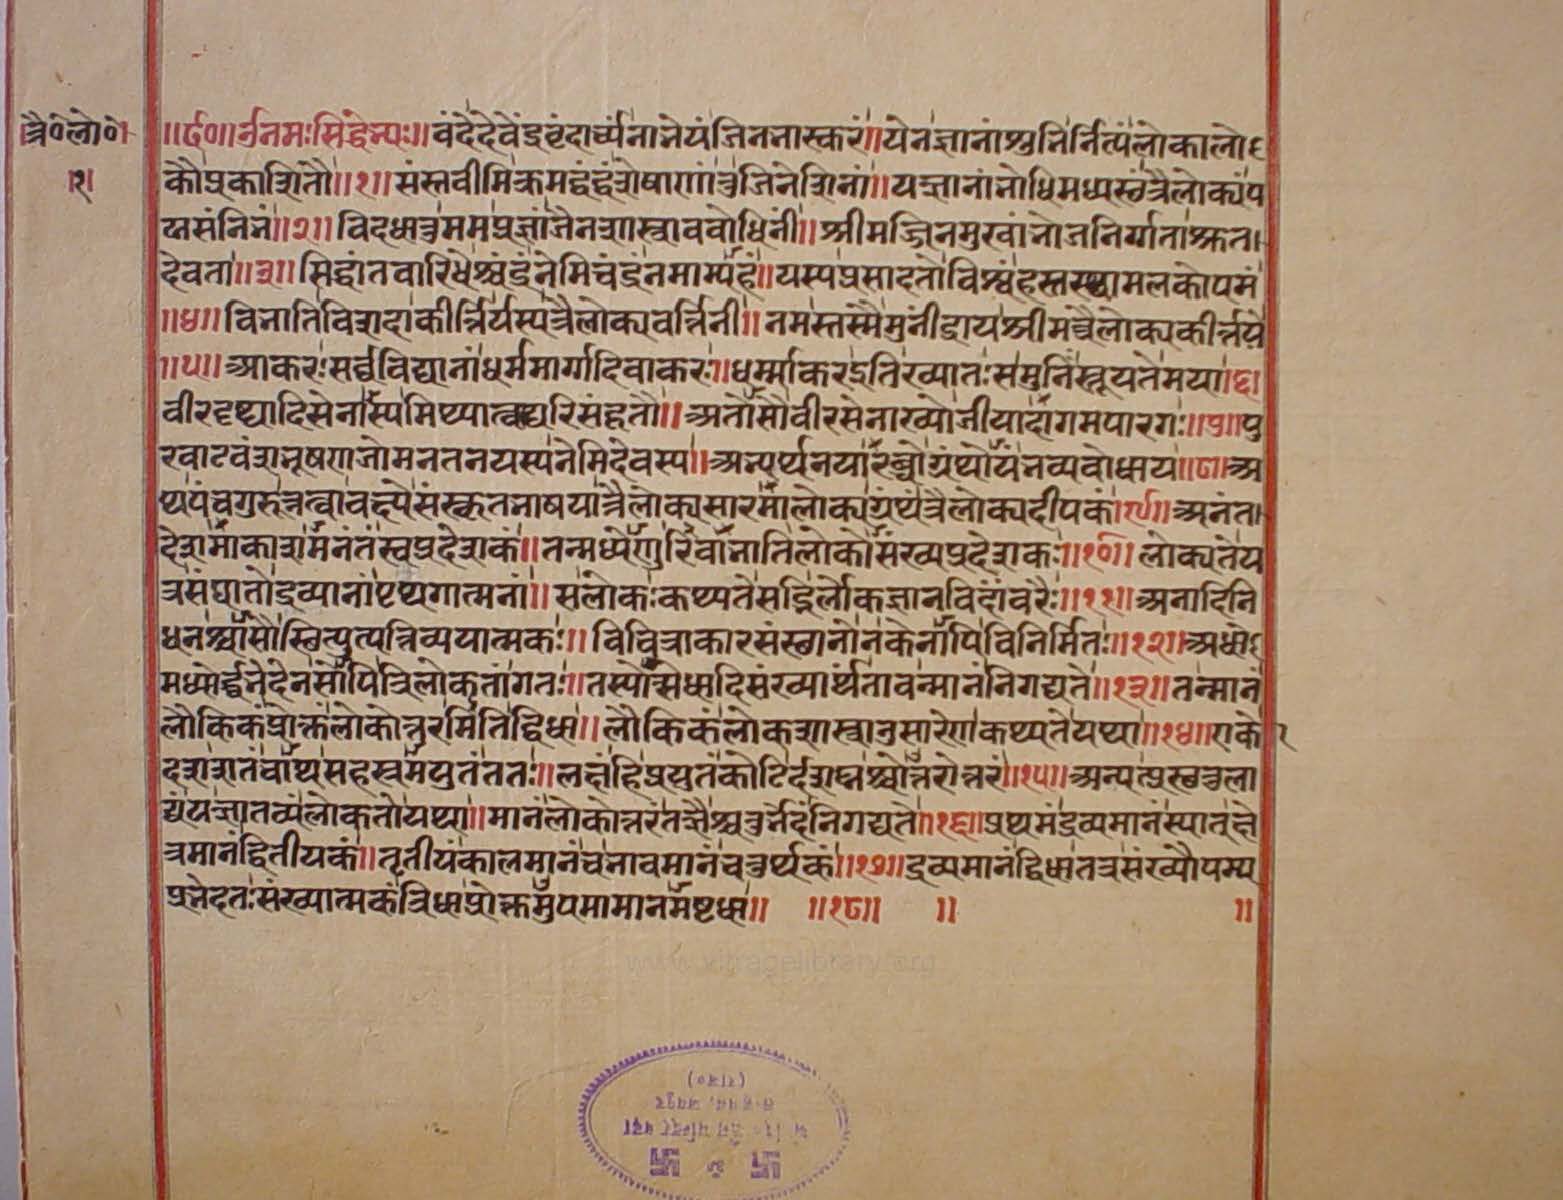 त्रै०लो०
।१।
॥र्द०॥ र्उनमःसिद्धेभ्यः॥वंदेदेवेंद्रवृंदार्च्यंनाभेयंजिनभास्करं॥येनज्ञानांशुभिर्नित्यंलोकालो
कौप्रकाशितौ॥१॥संस्तवीमिक्रमद्वंद्वंशेषाणांतुजिनेशिनां॥यज्ञानांभोधिमध्यस्थंत्रैलोक्यंप
द्मसंनिभं॥२॥विदधातुममप्रज्ञांजैनशास्त्राववोधिनीं॥श्रीमज्जिनमुखांभोजनिर्गताश्रुत।
देवता॥३॥सिद्धांतवारिधेश्चंद्रंनेमिचंद्रंनमाम्यहं॥यस्यप्रसादतोविश्वंहस्तस्थामलकोपमं
॥४॥विभातिविशदाकीर्त्तिर्यस्यत्रैलोक्यवर्त्तिनी॥नमस्तस्मैमुनींद्रायश्रीमत्त्रैलोक्यकीर्त्तये
॥५॥आकरःसर्व्वविद्यानांधर्ममार्गादिवाकरः॥धर्म्माकरइतिख्यातःसमुनिस्तूयतेमया।६।
वीरदृष्ट्यादिसेनास्यमिथ्यात्वाद्यरिसंहतौ॥अतोसौवीरसेनाख्योजीयादागमपारगः॥७॥पु
रवाटवंशभूषणजोमनतनयस्यनेमिदेवस्य॥अभ्यर्थनयारब्धोग्रंथोयंभव्यवोधाय॥८॥अ
थपंचगुरून्नत्वावक्ष्येसंस्कृतभाषयात्रैलोक्यसारमालोक्यग्रंथंत्रैलोक्यदीपकं।र्ए॥अनंत।
देशमाकाशमनंतस्वप्रदेशकं॥तन्मध्येणुरिवाभातिलोकोसंख्यप्रदेशकः॥१०॥लोक्यतेय
त्रसंघातोद्रव्यानांपृथगात्मनां॥सलोकःकथ्यतेसद्भिर्लोकज्ञानविदांवरैः॥११॥अनादिनि
धनश्चासौस्थित्युत्पत्तिव्ययात्मकः॥विचित्राकारसंस्थानोनकेनापिविनिर्मितः॥१२॥अधो
मध्योर्द्ध्वभेदेनसोपित्रिलोकतांगतः॥तस्योत्सेधादिसंख्यार्थंतावन्मानंनिगद्यते॥१३॥तन्मानं
लौकिकंप्रोक्तंलोकोत्तुरमितिद्विधा॥लौकिकंलोकशास्त्रानुसारेणकथ्यतेयथा॥१४॥एके
दशशतंवाथसहस्त्रमयुतंततः॥लक्षंहिप्रयुतंकोटिर्दशघ्नश्चोत्तरोत्तरं॥१५॥अन्यत्प्रस्थतुला
द्यंयज्ञातव्यंलोकतोयथा॥मानंलोकोत्तरंतज्ञैश्चतुर्भेदंनिगद्यते॥१६॥प्रथमंद्रव्यमानंस्यातक्षे
त्रमानंद्वितीयकं॥तृतीयंकालमानंचभावमानंचतुर्थकं॥१७॥द्रव्यमानंद्विधातत्रसंख्यौपम्य
प्रभेदतःसंख्यात्मकंत्रिधाप्रोक्तमुपमामानमष्टधा॥ ॥१८॥ ॥ ॥
www.vitragelibrary.org
(राज०)